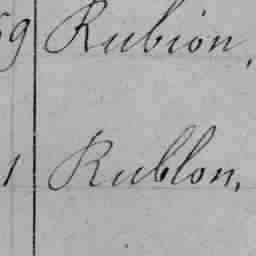 59 Rubion,
1 Rublon,